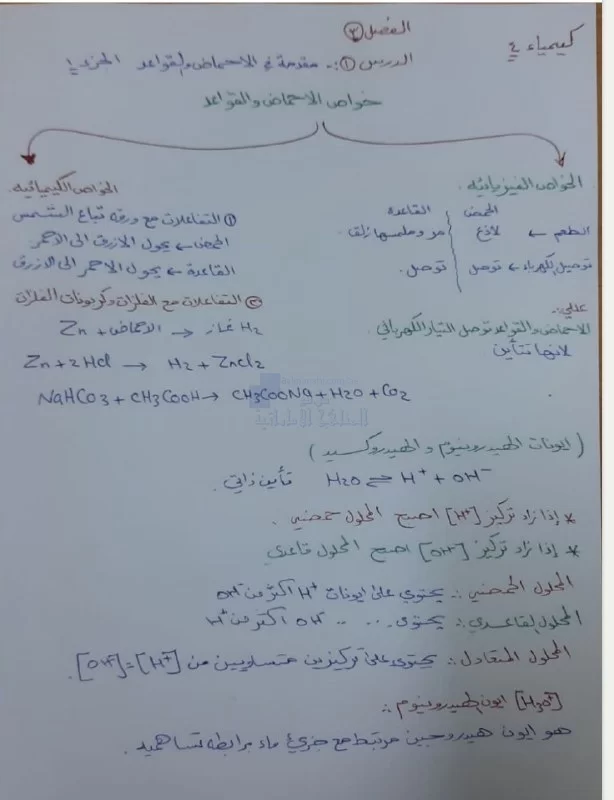 كيمياء ٤
الفصل ③
الدرس ① :- مقدمة في الاحماض والقواعد الجزء ١
خواص الاحماض والقواعد
الخواص الفيزيائيه.
الحمض القاعدة
الطعم ← لاذع مر وملمسها زلق.
توصيل الكهرباء ← توصل توصل.
عللي:-
الاحماض والقواعد توصل التيار الكهربائي.
لانها تتأين
الخواص الكيميائيه.
① التفاعلات مع ورقة تباع الشمس
الحمض ← يحول الازرق الى الاحمر
القاعدة ← يحول الاحمر الى الازرق
② التفاعلات مع الفلزات وكربونات الفلزات
Zn + الاحماض → غاز H2
Zn + 2HCl → H2 + ZnCl2
NaHCO3 + CH3COOH → CH3COONa + H2O + CO2
(ايونات الهيدرونيوم و الهيدروكسيد)
H2O ⇌ H+ + OH- تأين ذاتي.
* إذا زاد تركيز [H+] اصبح المحلول حمضي.
* إذا زاد تركيز [OH-] اصبح المحلول قاعدي
المحلول الحمضي :- يحتوي على ايونات H+ اكثر من OH-
المحلول القاعدي :- يحتوى .... OH- اكثر من H+
المحلول المتعادل :- يحتوي على تركيزين متساويين من [H+] = [OH-].
[H3O+] ايون الهيدرونيوم :-
هو ايون هيدروجين مرتبط مع جزيء ماء برابطه تساهميه.